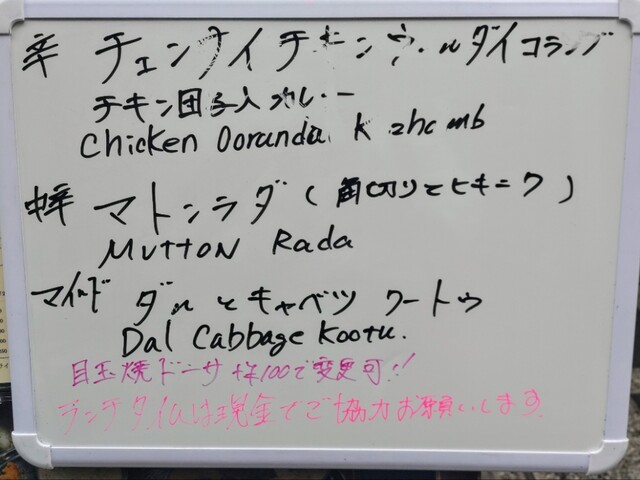 辛 チェンナイチキンウールダイコランブ
チキン団子入カレー
Chicken Ooranda Kozhcmb
中辛 マトンラダ (角切りとヒキニク)
MUTTON Rada
マイルド ダルとキャベツ クートゥ
Dal Cabbage Kootu.
目玉焼ドーサ +¥100で変更可!!
ランチタイムは現金でご協力お願いします